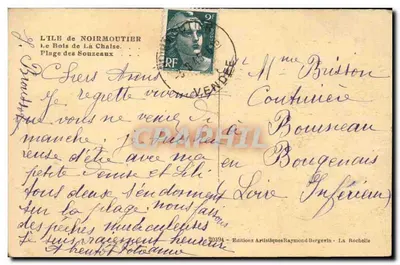 L'ILE de NOIRMOUTIER
Le Bois de La Chaise.
Plage des Souzeaux
2F
RF
VENDÉE
Chers Amis
Je regrette vivement
que vous ne veniez Di
manche, je suis heu
reuse d'être avec ma
petite Denise et
tous deux s'endorment
sur la plage, nous faisons
des pêches miraculeuses
Je suis vraiment heureuse
Mme Brisson
Couturière
à Bouseau
en Bougenais
Loire Inférieure
CPARAMA
Editions Artistiques Raymond Bergevin - La Rochelle